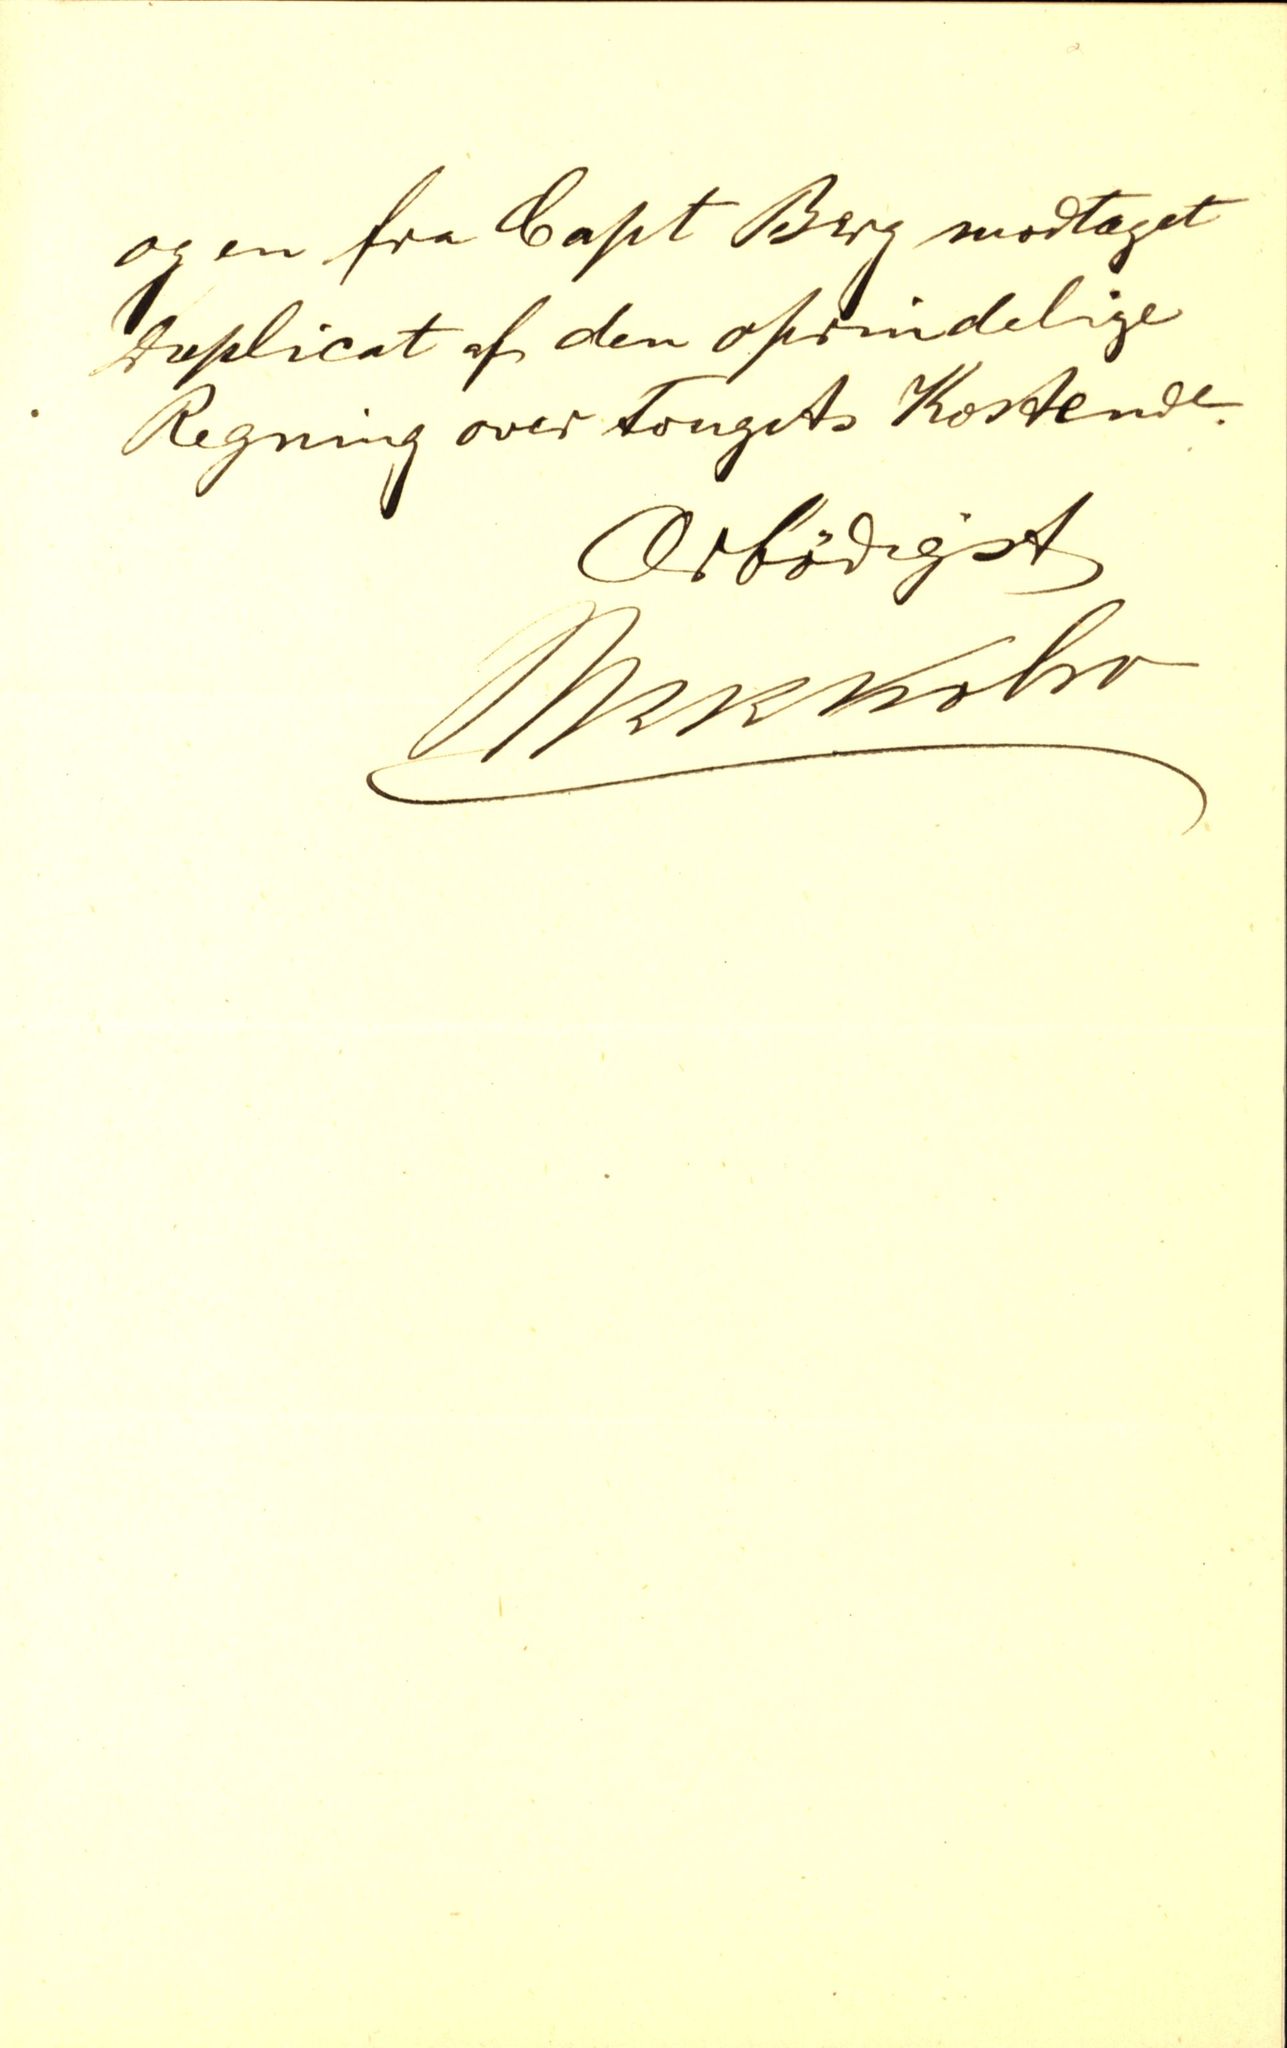 og en fra Capt Berg modtaget
Duplicat af den oprindelige
Regning over Tougets Kostende.
Ærbödigst